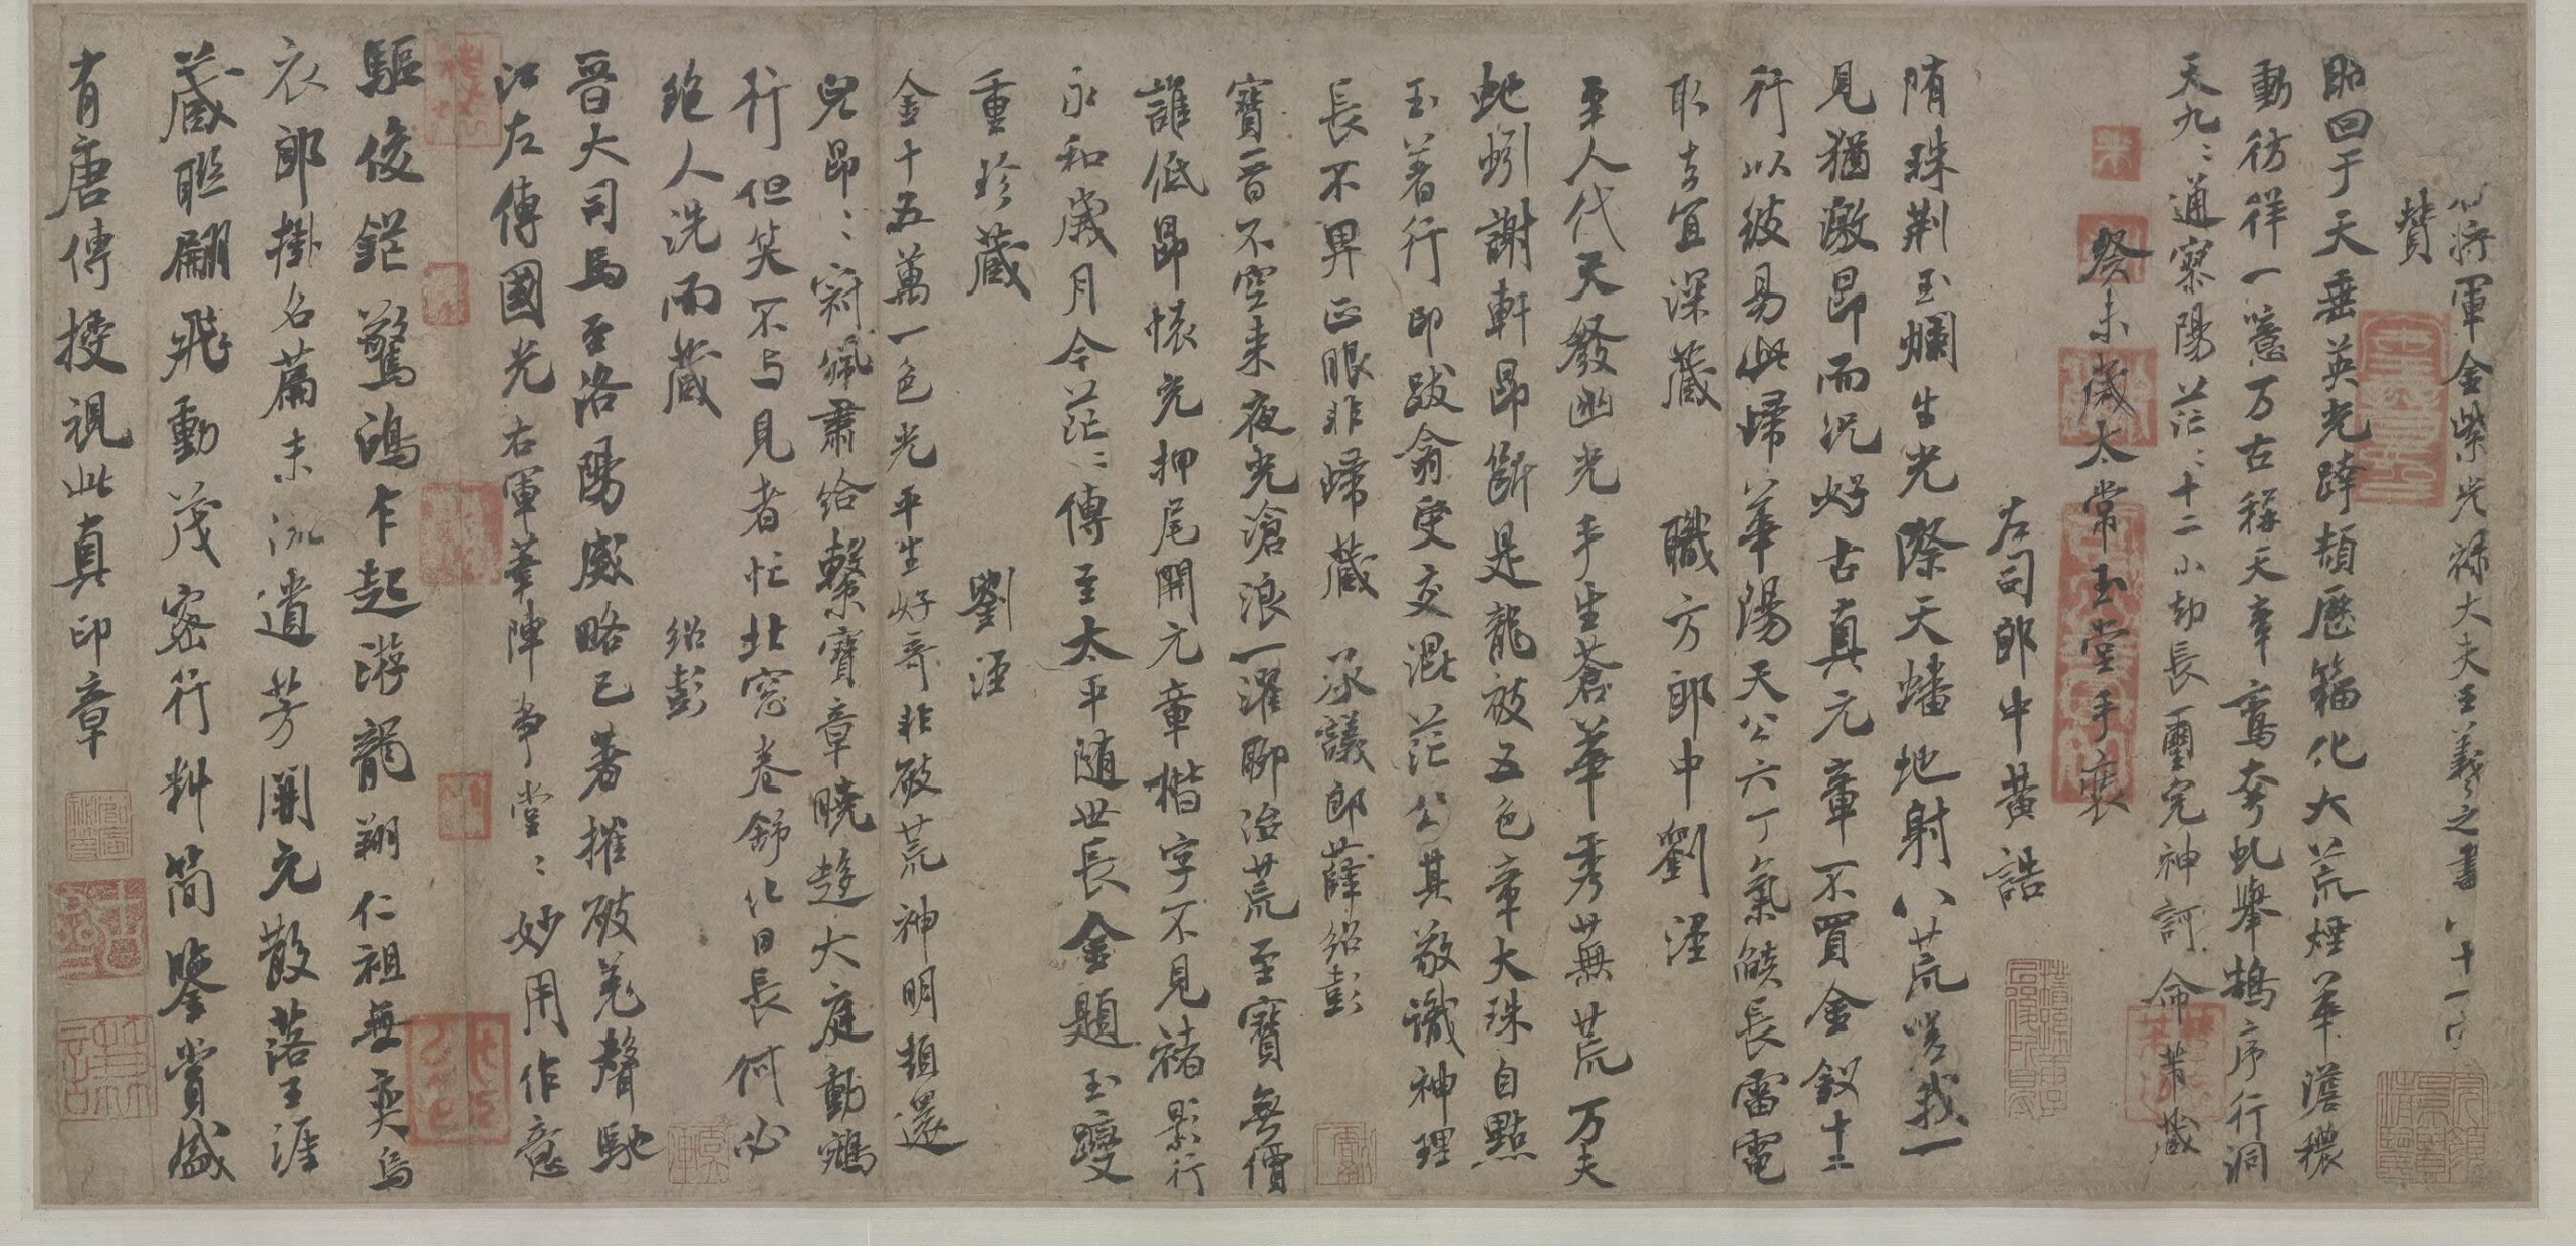 右將軍金紫光祿大夫王羲之書八十一字
贊
昭回于天垂英光跨頡歷籀化大荒煙華澹穠
動彷徉一噫万古稱天章鸞夸虬舉鵠序行洞
天九〻通寥陽茫〻十二小劫長璽完神訶命芾藏
癸未歲太常玉堂手裝
左司郎中黃誥
隋珠荆玉爛生光際天蟠地射八荒嗟我一
見猶激昂而況好古真元章不買金釵十二
行以彼易此歸華陽天公六丁氣燄長雷電
取去宜深藏 職方郎中劉涇
聖人代天發幽光手生蒼華秀無荒万夫
蚍蚓謝軒昂斷是龍被五色章大珠自點
玉著行印跋翕雙交混茫公其敬識神理
長不畀正眼非歸藏 承議郎薛紹彭
寶晉不空来夜光滄浪一濯聊治荒至寶無價
誰低昂懷充押尾開元章楷字不見褚影行
永和歲月今茫〻傳至太平隨世長金題玉躞
重珍藏 劉涇
金十五萬一色光平生好奇非破荒神明頓還
兒昂〻冠佩肅給繫寶章曉趍大庭動鵷
行但笑不与見者忙北窓卷舒化日長何必
絶人洗而藏 紹彭
晉大司馬至洛陽威略已著摧破羌聲馳
江左傳國光右軍筆陣爭堂〻妙用作意
驅俊鋩驚鴻乍起游龍翔仁祖無奕烏
衣郎掛名篇末流遺芳開元散落王涯
藏聯翩飛動茂密行料簡鑒賞盛
有唐傳授視此真印章